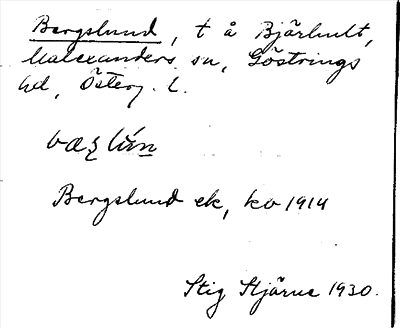 Bergslund, t å Bjärhult,
Malexanders sn, Göstrings
hd, Österg. l.
Bergslund ek, ko 1914
Stig Stjärne 1930.